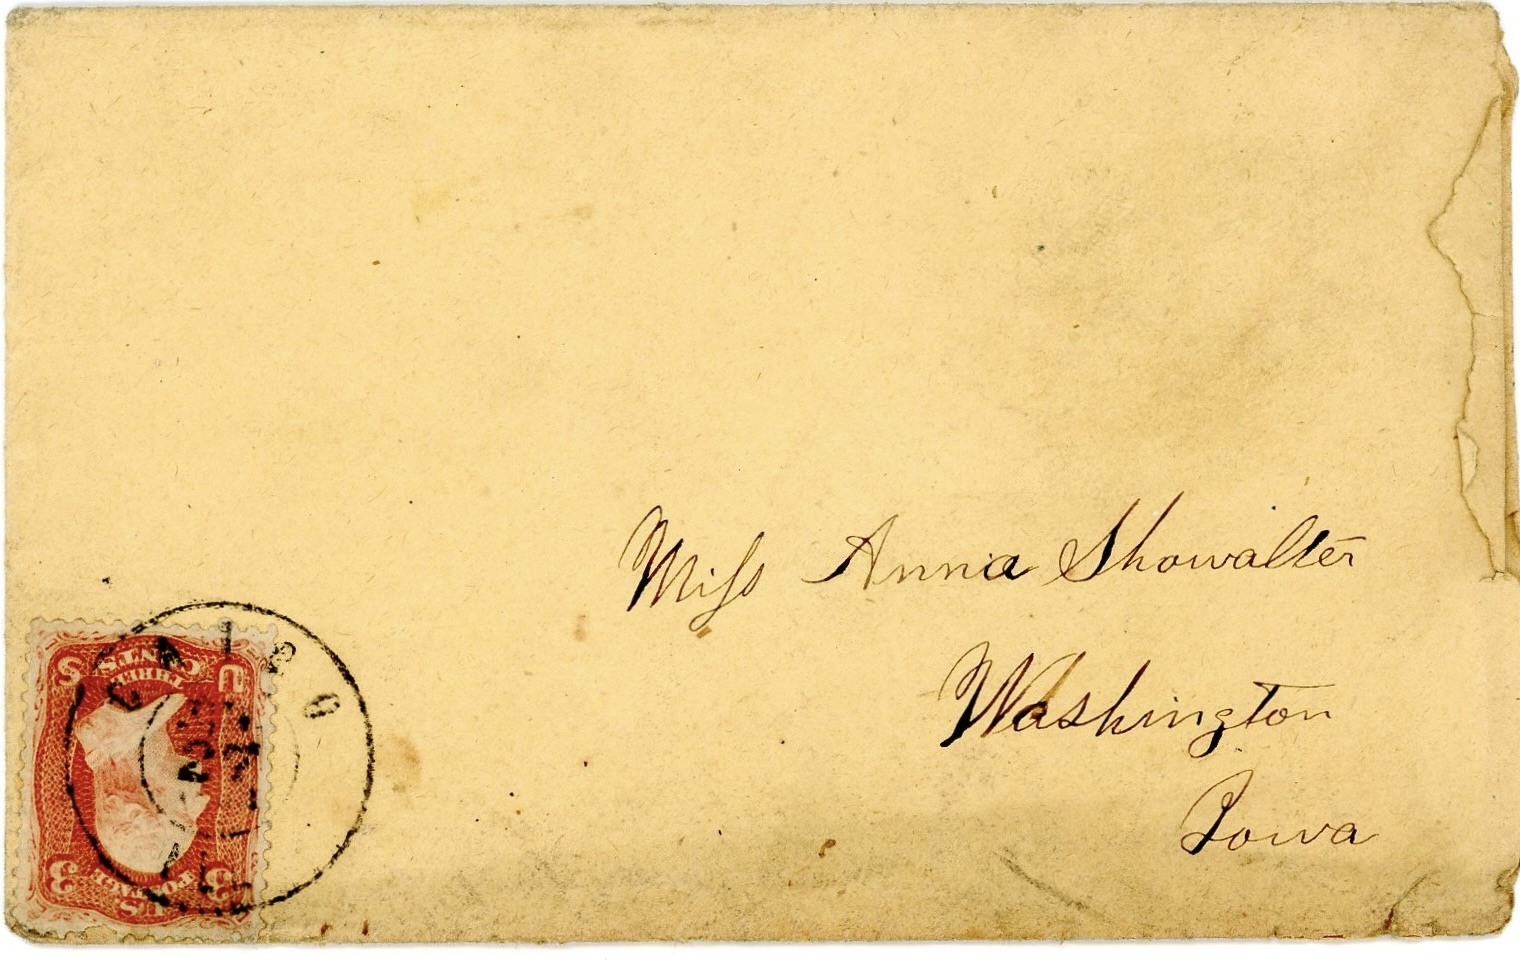 Miss Anna Showalter
Washington
Iowa
CAIRO
U S
THREE
CENTS
3 3
U.S.
POSTAGE